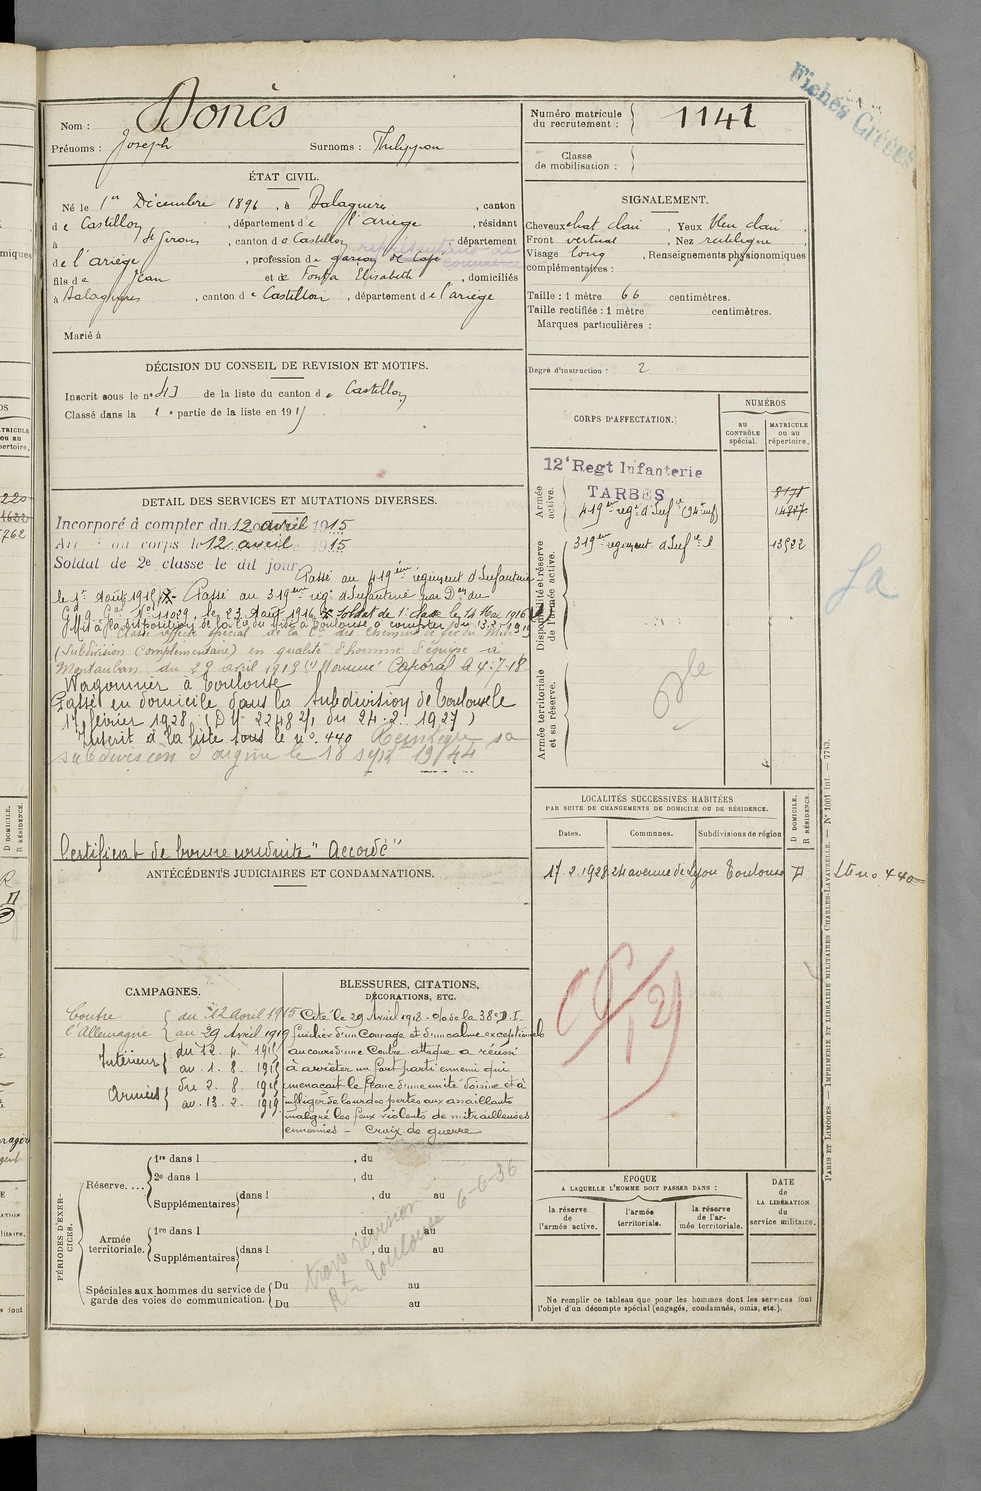 Fiches Gréées
Nom : Donès
Prénoms : Joseph Surnoms : Philippon
Numéro matricule du recrutement : 1141
Classe de mobilisation :
ÉTAT CIVIL.
Né le 1er Décembre 1896, à Balaguères, canton
de Castillon, département de l'ariège, résidant
à St Girons, canton de Castillon, département
de l'ariège, profession de garçon de café
représentant de commerce
fils de Jean et de Fonta Elisabeth, domiciliés
à Balaguères, canton de Castillon, département de l'ariège
Marié à
SIGNALEMENT.
Cheveux chat clair, Yeux bleu clair
Front vertical, Nez rectiligne
Visage long, Renseignements physionomiques
complémentaires :
Taille : 1 mètre 66 centimètres.
Taille rectifiée : 1 mètre centimètres.
Marques particulières :
Degré d'instruction : 2
DÉCISION DU CONSEIL DE REVISION ET MOTIFS.
Inscrit sous le n° 43 de la liste du canton de Castillon
Classé dans la 1e partie de la liste en 1915
CORPS D'AFFECTATION.
NUMÉROS
au CONTRÔLE spécial.
MATRICULE ou au répertoire.
Armée active.
12e Regt Infanterie
TARBES
8171
419er regt d'Infie (94e inf)
14817
Disponibilité et réserve de l'armée active.
319er regiment d'Infie
13922
Armée territoriale et sa réserve.
DETAIL DES SERVICES ET MUTATIONS DIVERSES.
Incorporé à compter du 12 avril 1915
Arrivé au corps le 12 avril 1915
Soldat de 2e classe le dit jour
Passé au 419ème régiment d'Infanterie
le 1er Août 1915. Passé au 319eme régt d'Infanterie par Don du
Gd Q. Gal No 11029, le 23 Août 1916. Soldat de 1e classe le 14 Mai 1916
Classé affecté spécial de la Cie des Chemins de fer du Midi
(Subdivision Complémentaire) en qualité d'homme d'équipe à
Montauban du 29 avril 1919 (1) Nommé Caporal le 4-7-18
Wagonnier à Toulouse
Passé en domicile dans la subdivision de Toulouse le
17 février 1928 (DM 2248 2/1 du 24.2.1927)
Inscrit à la liste sous le no. 440 Réintègre sa
subdivision d'origine le 18 sept 1944
Certificat de bonne conduite "Accordé"
ANTÉCÉDENTS JUDICIAIRES ET CONDAMNATIONS.
LOCALITÉS SUCCESSIVES HABITÉES
PAR SUITE DE CHANGEMENTS DE DOMICILE OU DE RÉSIDENCE.
Dates. Communes. Subdivisions de région
D DOMICILE.
R RÉSIDENCE.
17.2.1928 24 avenue de Lyon Toulouse D
Ste no 440
CAMPAGNES.
Contre l'Allemagne
du 12 Avril 1915
au 29 Avril 1919
Intérieur
du 12. 4. 1915
au 1. 8. 1915
Armées
du 2. 8. 1915
au 13. 2. 1919
BLESSURES, CITATIONS,
DÉCORATIONS, ETC.
Cité le 29 Avril 1918. o/o de la 38e D.I.
fusilier d'un Courage et d'un calme exceptionnels
au cours d'une Contre attaque a réussi
à arrêter un fort parti ennemi qui
menaçait le flanc d'une unité voisine et à
infliger de lourdes pertes aux assaillants
malgré les feux violents de mitrailleuses
ennemies - Croix de guerre
PÉRIODES D'EXERCICES.
Réserve....
1re dans l , du
2e dans l , du
Supplémentaires dans l , du au
Armée territoriale.
1re dans l , du au
Supplémentaires dans l , du au
Spéciales aux hommes du service de
garde des voies de communication.
Du au
Du au
trans révision
Rt Toulouse 6-6-36
ÉPOQUE
A LAQUELLE L'HOMME DOIT PASSER DANS :
la réserve de l'armée active.
l'armée territoriale.
la réserve de l'armée territoriale.
DATE de LA LIBÉRATION du service militaire.
Ne remplir ce tableau que pour les hommes dont les services font
l'objet d'un décompte spécial (engagés, condamnés, omis, etc.).
PARIS ET LIMOGES. — IMPRIMERIE ET LIBRAIRIE MILITAIRES CHARLES-LAVAUZELLE. — N° 1001 int. — 7713.